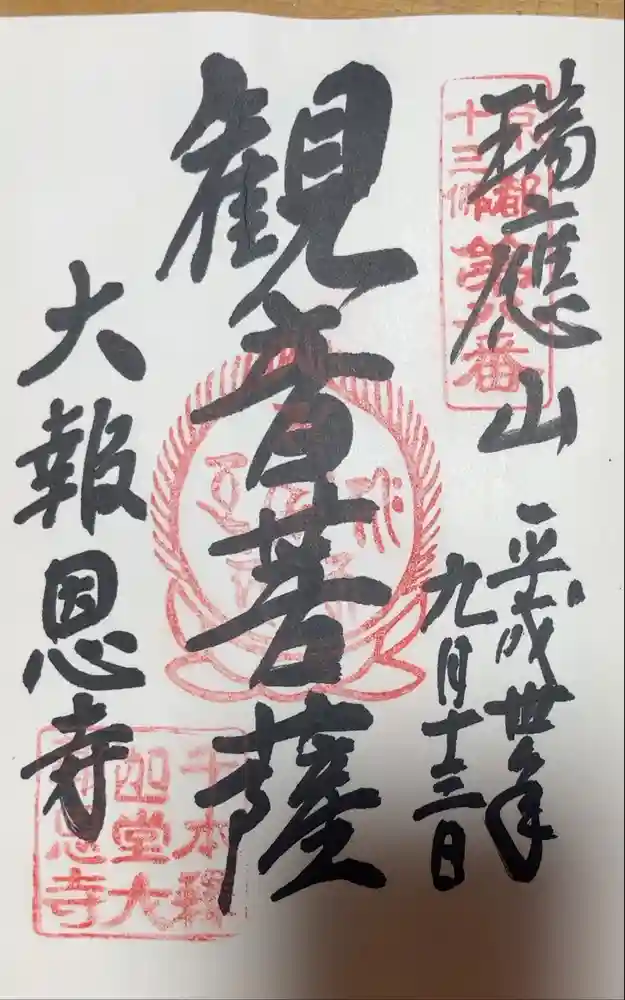 瑞應山
平成卅年
九月十三日
京都
十三佛
第八番
観音菩薩
大報恩寺
千本釋
迦堂大
報恩寺